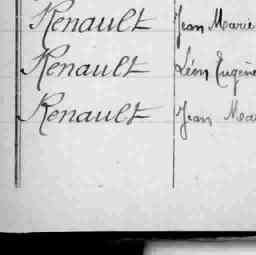 Renault Jean Marie
Renault Léon Eugène
Renault Jean